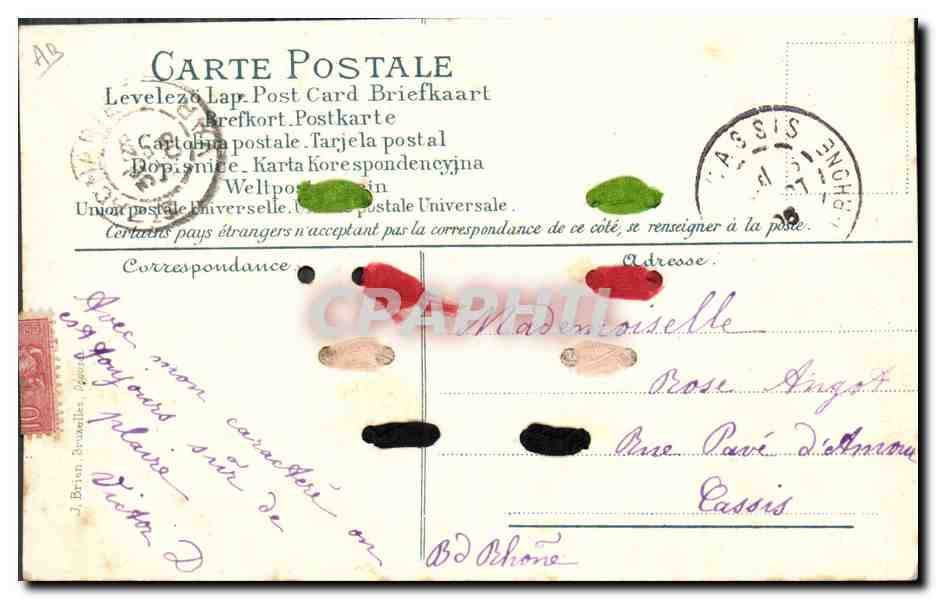 AB
CARTE POSTALE
Levelezö Lap. Post Card Briefkaart
Brefkort. Postkarte
Cartolina postale. Tarjela postal
Dopisnice. Karta Korespondencyjna
Weltpos
Union postale Universelle. U postale Universale.
Certains pays étrangers n'acceptant pas la correspondance de ce côté, se renseigner à la poste.
CASSIS
RHONE
Correspondance.
Adresse.
Avec mon caractère on
est toujours sûr de
plaire
Victor D
CPAPHIL
Mademoiselle
Rose Angot
Rue Pavé d'Amour
Cassis
Bd Rhône
J. Brien Bruxelles,
10